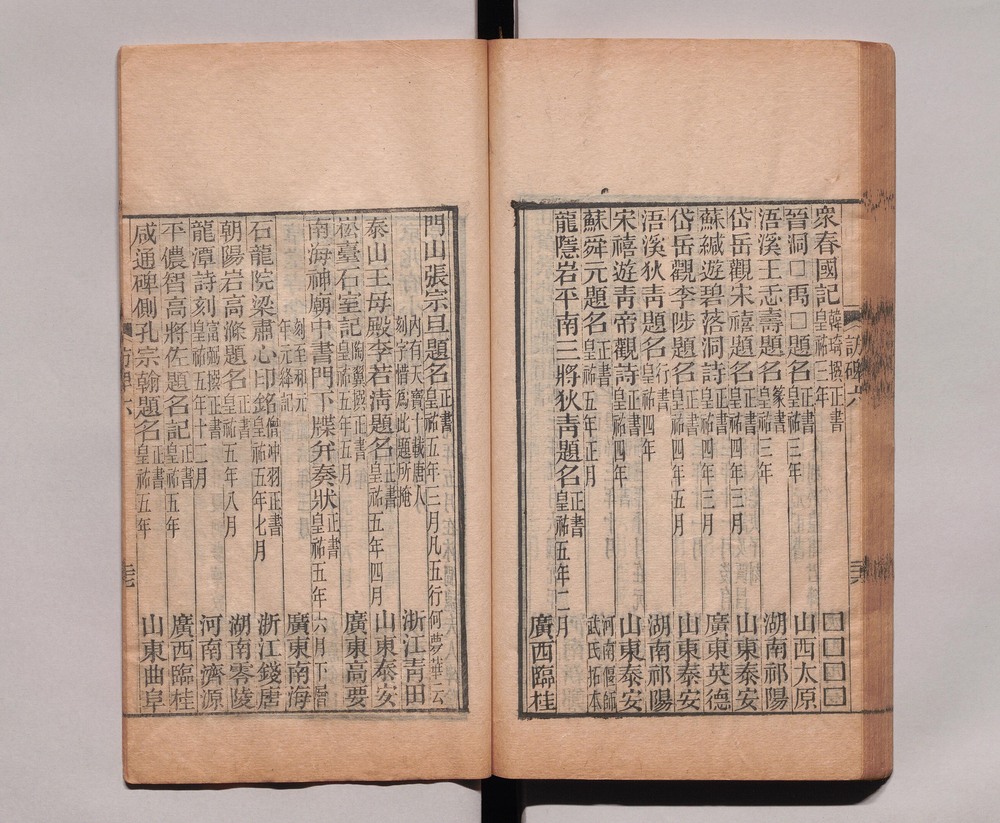 衆春國記韓琦撰正書皇祐三年 □□□□
晉洞□禹□題名正書皇祐三年 山西太原
浯溪王忎壽題名篆書皇祐三年 湖南祁陽
岱岳觀宋禧題名正書皇祐四年三月 山東泰安
蘇緘遊碧落洞詩正書皇祐四年三月 廣東英德
岱岳觀李陟題名正書皇祐四年五月 山東泰安
浯溪狄青題名行書皇祐四年 湖南祁陽
宋禧遊青帝觀詩正書皇祐四年 山東泰安
蘇舜元題名正書皇祐五年正月 河南偃師武氏拓本
龍隱岩平南三將狄青題名正書皇祐五年二月 廣西臨桂
訪碑六
門山張宗旦題名正書皇祐五年三月凡五行何夢華云
內有天寶十載唐人刻字惜爲此題所掩 浙江青田
泰山王母殿李若清題名正書皇祐五年四月 山東泰安
崧臺石室記陶翼撰正書皇祐五年五月 廣東高要
南海神廟中書門下牒并奏狀正書皇祐五年六月下層
刻至和元年元絳記 廣東南海
石龍院梁肅心印銘僧冲羽正書皇祐五年七月 浙江錢唐
朝陽岩高滌題名正書皇祐五年八月 湖南零陵
龍潭詩刻富弼撰正書皇祐五年十二月 河南濟源
平儂智高將佐題名記正書皇祐五年 廣西臨桂
咸通碑側孔宗翰題名正書皇祐五年 山東曲阜
訪碑六